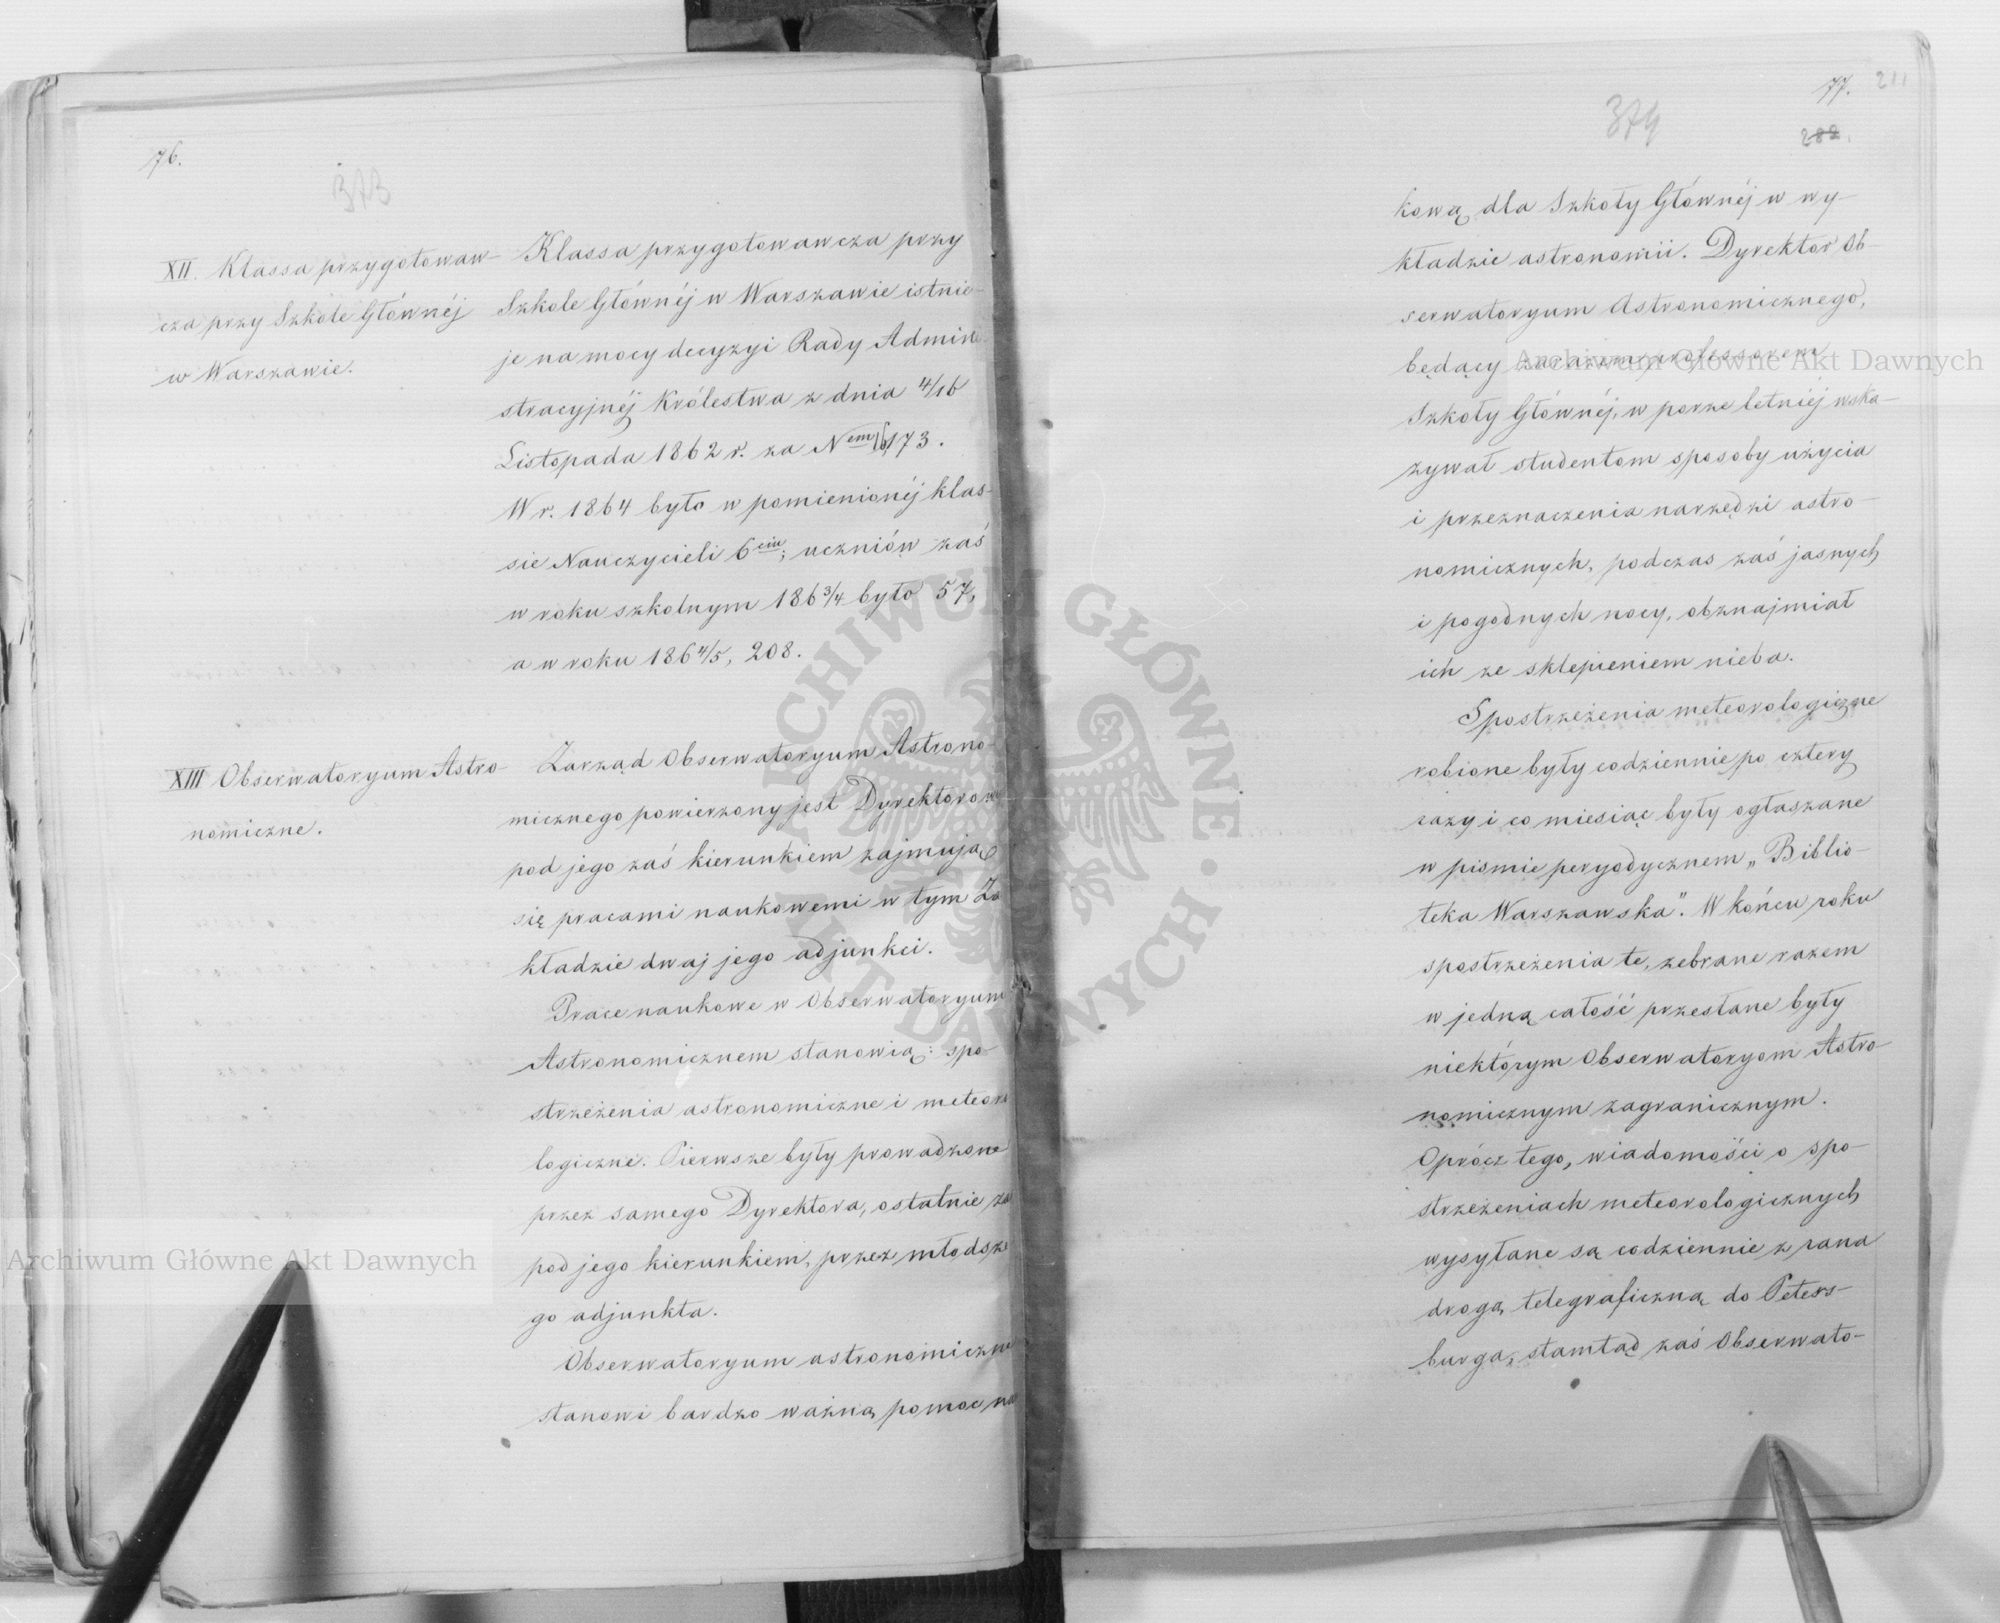 76.
373
XII. Klassa przygotowaw-
cza przy Szkole Głównéj
w Warszawie.
Klassa przygotowawcza przy
Szkole Głównéj w Warszawie istnie-
je na mocy decyzyi Rady Admini
stracyjnéj Królestwa z dnia 4/16
Listopada 1862 r. za Nem 16,173.
W r. 1864 było w pomienionéj klas-
sie Nauczycieli 6ciu; uczniów zaś
w roku szkolnym 186 3/4 było 57,
a w roku 186 4/5, 208.
XIII Obserwatoryum Astro-
nomiczne.
Zarząd Obserwatoryum Astrono-
micznego powierzony jest Dyrektorowi
pod jego zaś kierunkiem zajmują
się pracami naukowemi w tym Za
kładzie dwaj jego adjunkci.
Prace naukowe w Obserwatoryum
Astronomicznem stanowią: spo-
strzeżenia astronomiczne i meteoro
logiczne. Pierwsze były prowadzone
przez samego Dyrektora, ostatnie zaś
pod jego kierunkiem, przez młodsze
go adjunkta.
Obserwatoryum astronomiczne
stanowi bardzo ważną pomoc nau
77. 211
374
282.
kową dla Szkoły Głównéj w wy-
kładzie astronomii. Dyrektor Ob-
serwatoryum Astronomicznego,
będący zarazem professorem
Szkoły Głównéj, w porze letniéj wska-
zywał studentom sposoby użycia
i przeznaczenia narzędzi astro-
nomicznych, podczas zaś jasnych
i pogodnych nocy, obznajmiał
ich ze sklepieniem nieba.
Spostrzeżenia meteorologiczne
robione były codziennie po cztery
razy i co miesiąc były ogłaszane
w pismie peryodycznem „Biblio-
teka Warszawska". W końcu roku
spostrzeżenia te, zebrane razem
w jedną całość przesłane były
niektórym Obserwatoryom Astro-
nomicznym zagranicznym.
Oprócz tego, wiadomości o spo-
strzeżeniach meteorologicznych
wysyłane są codziennie z rana
drogą telegraficzną do Peters-
burga, stamtąd zaś Obserwato-
Archiwum Główne Akt Dawnych
Archiwum Główne Akt Dawnych
ARCHIWUM GŁÓWNE · AKT DAWNYCH ·